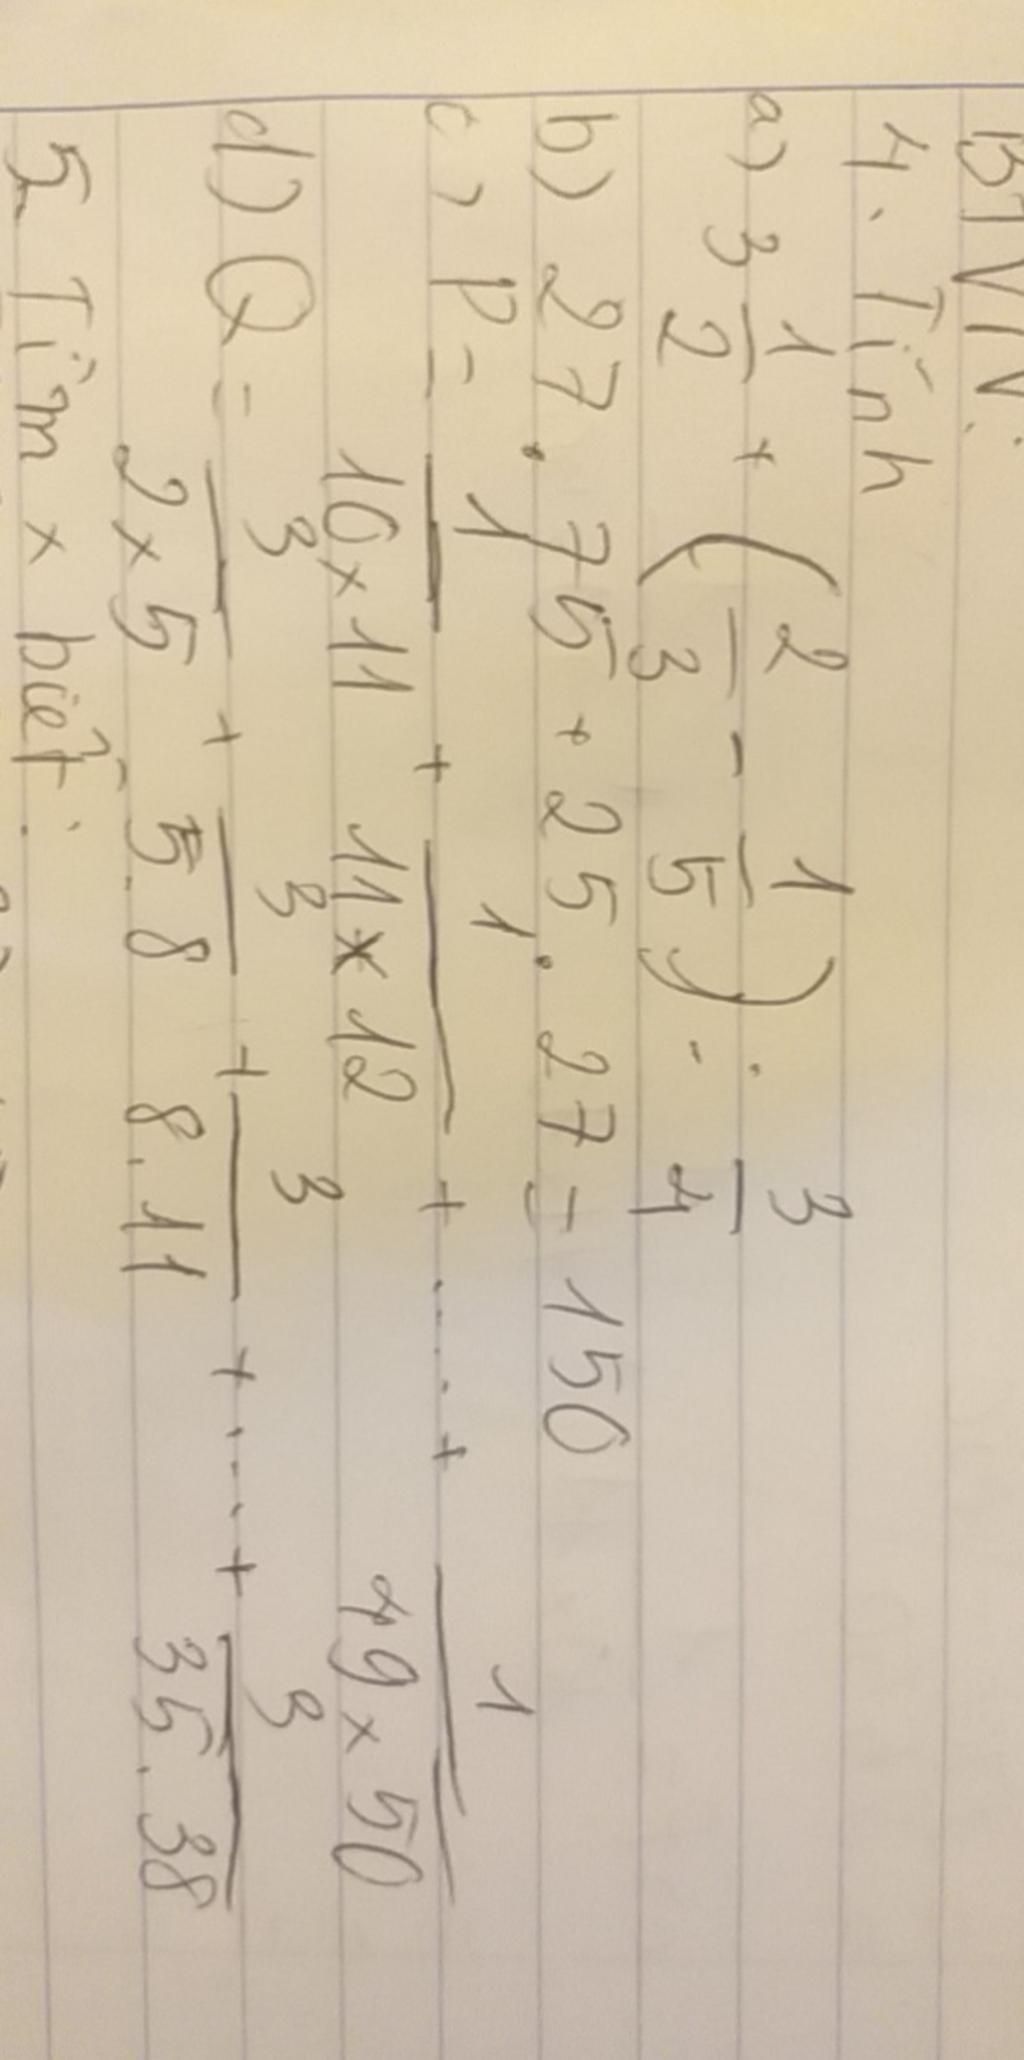 BTVN:
4. Tính
a) 3 1/2 + (2/3 - 1/5) : 3/4
b) 27 . 75 + 25 . 27 - 150
c) P = 1/10×11 + 1/11×12 + ..... + 1/49×50
d) Q = 3/2×5 + 3/5.8 + 3/8.11 + .... + 3/35.38
5. Tìm x biết: